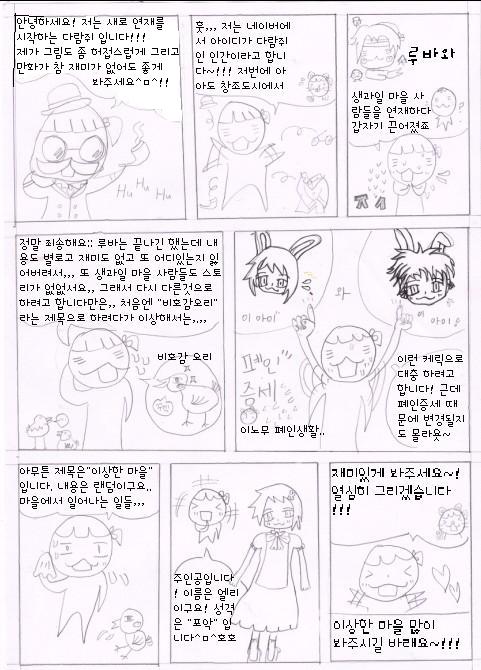 안녕하세요! 저는 새로 연재를
시작하는 다람쥐 입니다!!!
제가 그림도 좀 허접스럽게 그리고
만화가 참 재미가 없어도 좋게
봐주세요^ㅁ^!!
Hu Hu Hu
훗,,, 저는 네이버에
서 아이디가 다람쥐
인 인간이라고 합니
다~!!! 저번에 아
아도 창조도시에서
루바와
생과일 마을 사
람들을 연재하다
갑자기 끈어졌죠
정말 죄송해요;; 루바는 끝나긴 했는데 내
용도 별로고 재미도 없고 또 어디있는지 잃
어버려서,,, 또 생과일 마을 사람들도 스토
리가 없없서요,, 그래서 다시 다른것으로
하려고 합니다만은,, 처음엔 "비호감요리"
라는 제목으로 하려다가 이상해서는,,,,
비호감 요리
이 아이
와
이 아이
폐인
증세
이노무 폐인생활..
이런 케릭으로
대충 하려고
합니다! 근데
폐인증세 때
문에 변경될지
도 몰라욧~
아무튼 제목은"이상한 마을"
입니다. 내용은 랜덤이구요..
마을에서 일어나는 일들,,,
주인공입니다
! 이름은 엘리
이구요! 성격
은 "포악" 입
니다^ㅁ^호호
재미있게 봐주세요~!
열심히 그리겠습니다
!!!
이상한 마을 많이
봐주시길 바래요~!!!